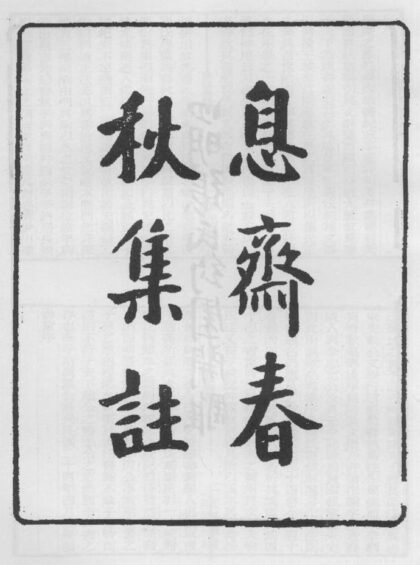 息齋春
秋集註